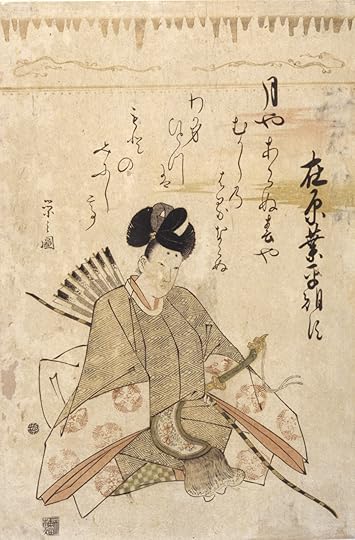 在原業平朝臣
月やあらぬ春や
むかしの
はるならぬ
わか身
ひとつは
もとの
栄之図